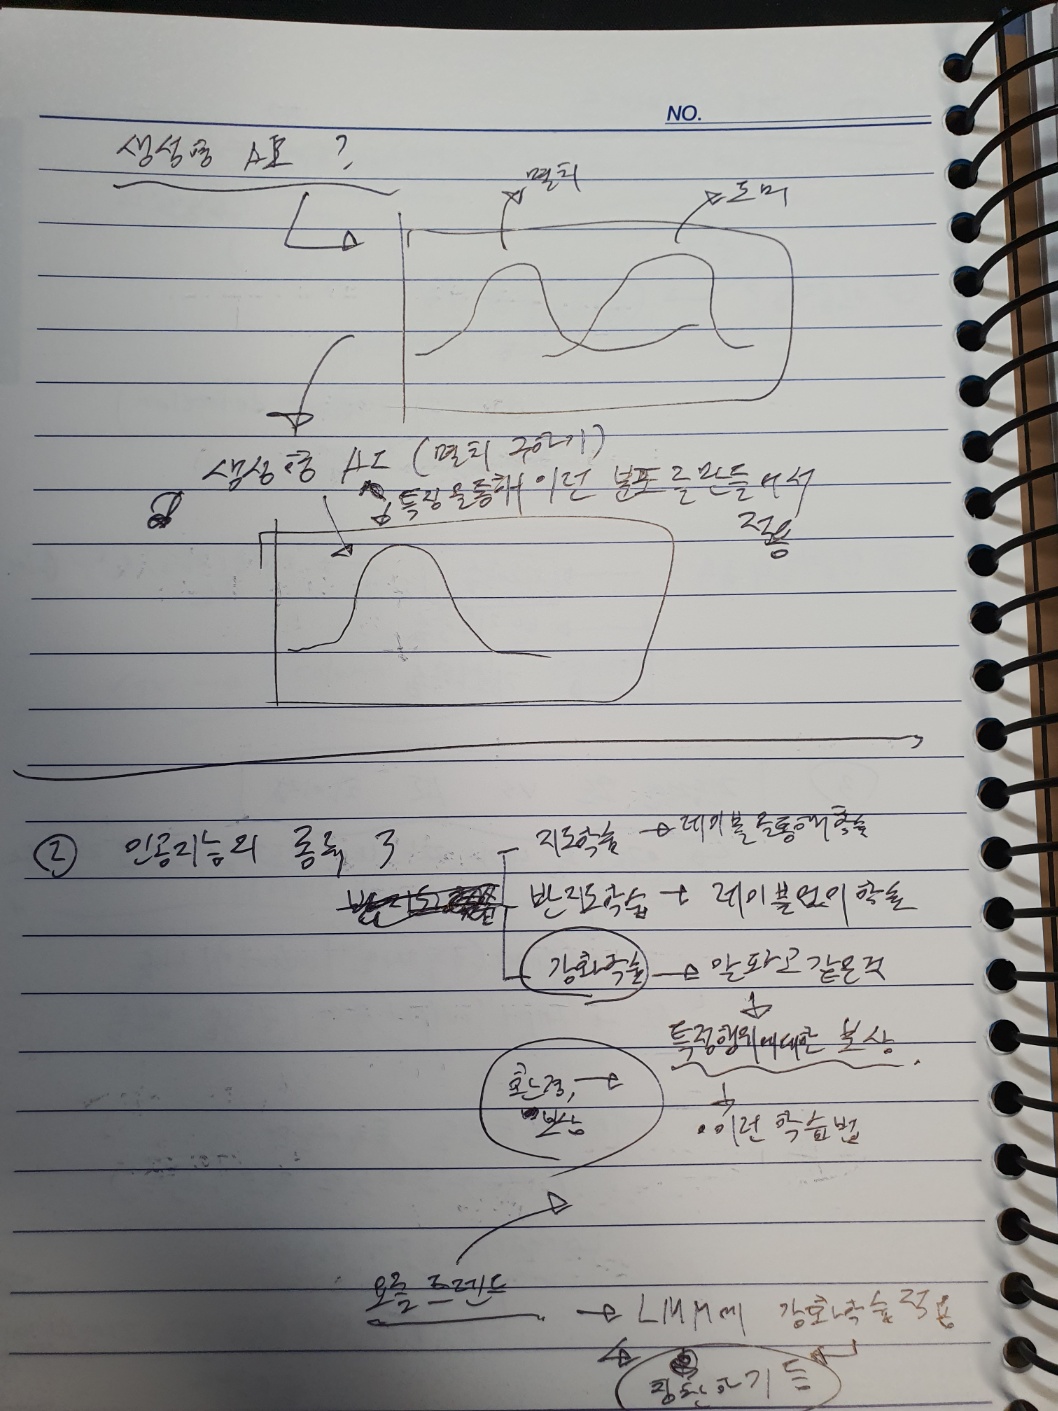 NO.
생성형 AI ?
멸치
도미
생성형 AI (멸치 구하기)
특징을통해 이런 분포를만들어서
적용
② 인공지능의 종류 3
지도학습 → 레이블을통해학습
반지도학습 → 레이블없이학습
강화학습 → 알파고같은것
특정행위에대한 보상
환경, →
보상
이런 학습법
요즘 트렌드 → LMM에 강화학습적용